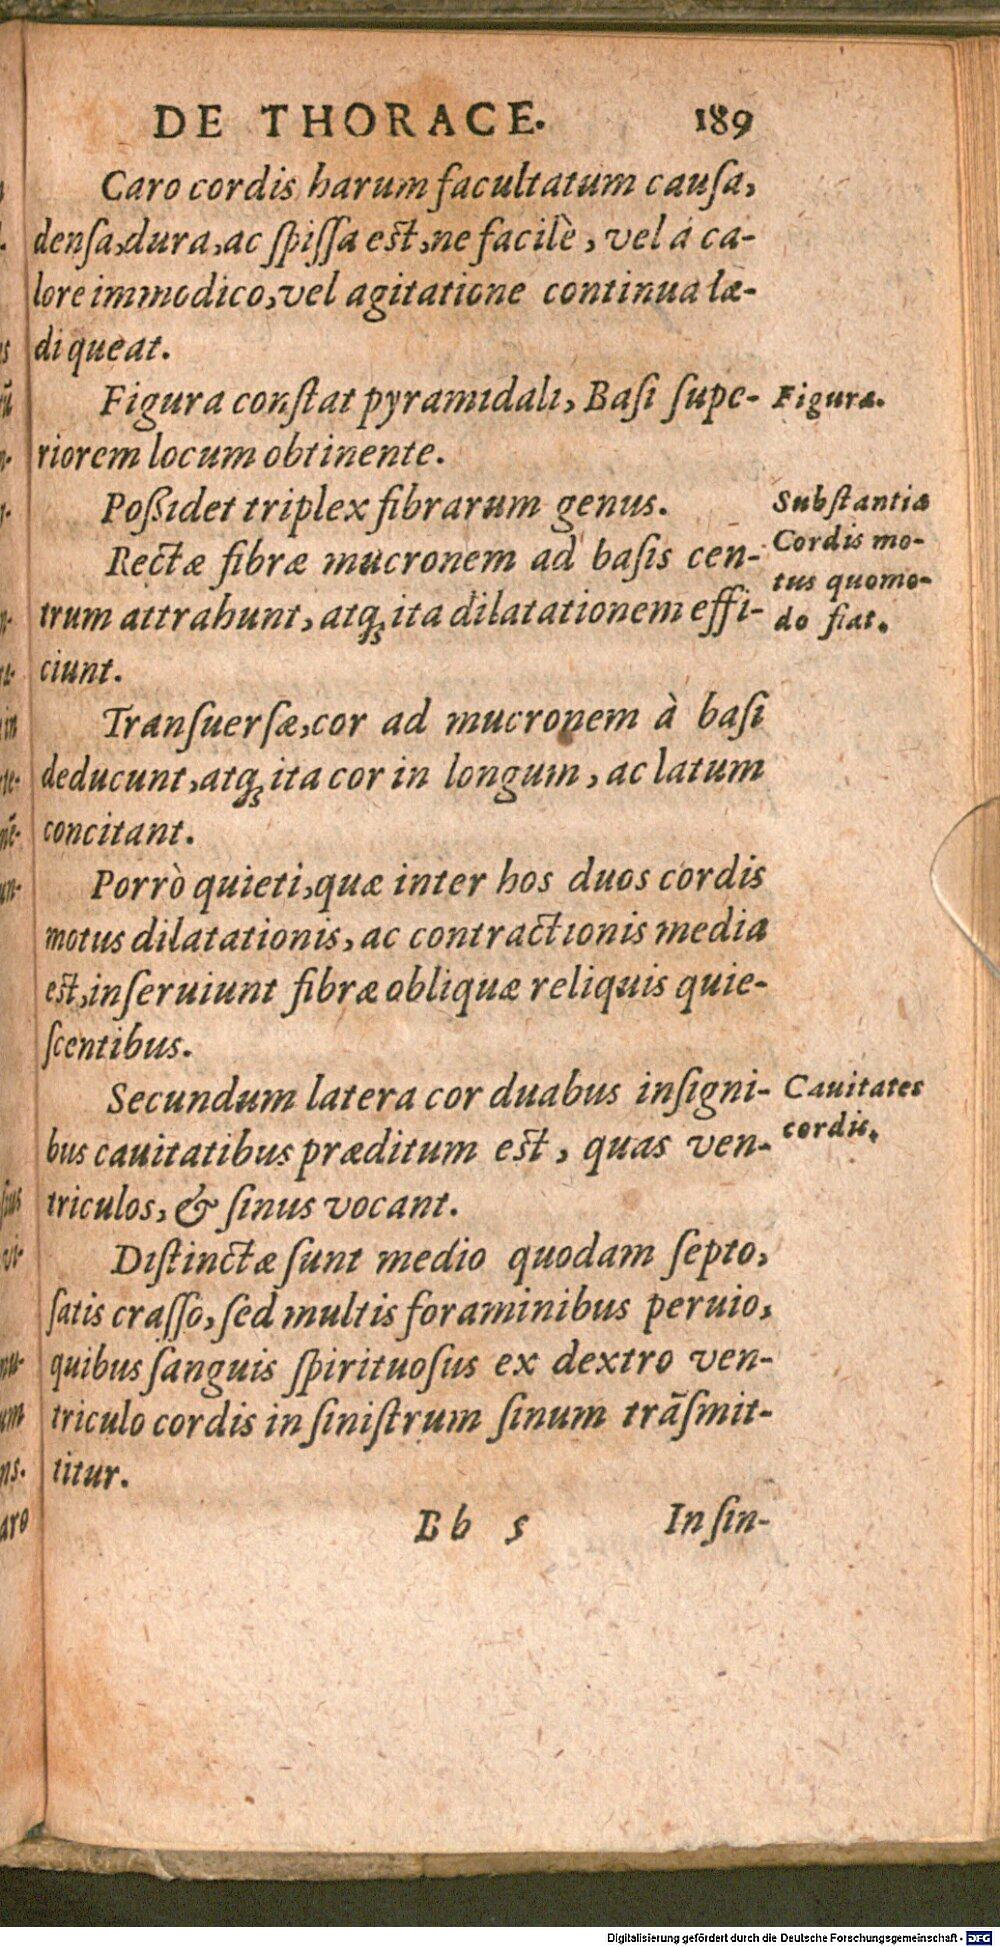 DE THORACE. 189
Caro cordis harum facultatum cauſa,
denſa,dura,ac ſpiſſa est,ne facilè, vel à ca-
lore immodico,vel agitatione continua læ-
di queat.
Figura conſtat pyramidali, Baſi ſupe-
Figura.
riorem locum obtinente.
Poßidet triplex fibrarum genus.
Subſtantia
Rectæ fibræ mucronem ad baſis cen-
Cordis mo-
tus quomo-
trum attrahunt, atq; ita dilatationem effi-
do fiat.
ciunt.
Tranſuerſæ,cor ad mucronem à baſi
deducunt,atq; ita cor in longum, ac latum
concitant.
Porrò quieti,quæ inter hos duos cordis
motus dilatationis, ac contractionis media
est,inſeruiunt fibræ obliquæ reliquis quie-
ſcentibus.
Secundum latera cor duabus inſigni-
Cauitates
bus cauitatibus præditum est, quas ven-
cordis.
triculos, & ſinus vocant.
Diſtinctæ ſunt medio quodam ſepto,
ſatis craſſo, ſed multis foraminibus peruio,
quibus ſanguis ſpirituoſus ex dextro ven-
triculo cordis in ſiniſtrum ſinum trãſmit-
titur.
Bb 5 In ſin-
Digitalisierung gefördert durch die Deutsche Forschungsgemeinschaft - DFG